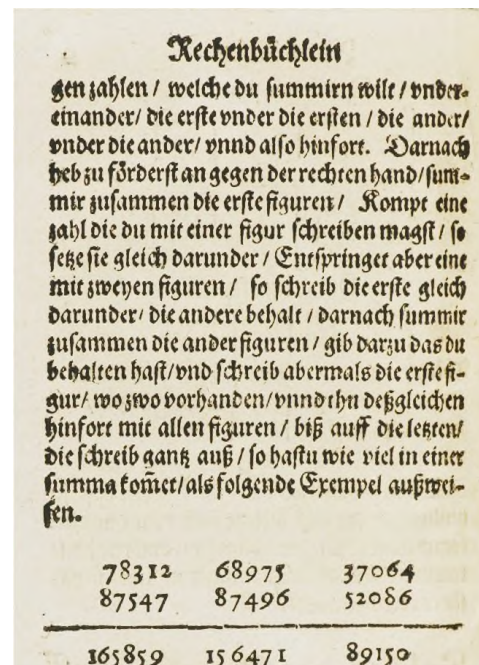 Rechenbüchlein
gen zahlen / welche du summirn wilt / vnder-
einander/ die erste vnder die ersten / die ander/
vnder die ander/ vnnd also hinfort. Darnach
heb zu förderst an gegen der rechten hand/sum-
mir zusammen die erste figuren/ Kompt eine
zahl die du mit einer figur schreiben magst / so
setze sie gleich darunder / Entspringet aber eine
mit zweyen figuren / so schreib die erste gleich
darunder/ die andere behalt / darnach summir
zusammen die ander figuren / gib darzu das du
behalten hast/vnd schreib abermals die erste fi-
gur/ wo zwo vorhanden/vnnd thu deßgleichen
hinfort mit allen figuren / biß auff die letzten/
die schreib gantz auß / so hastu wie viel in einer
summa kom̃et/als folgende Exempel außwei-
sen.
78312 68975 37064
87547 87496 52086
165859 156471 89150